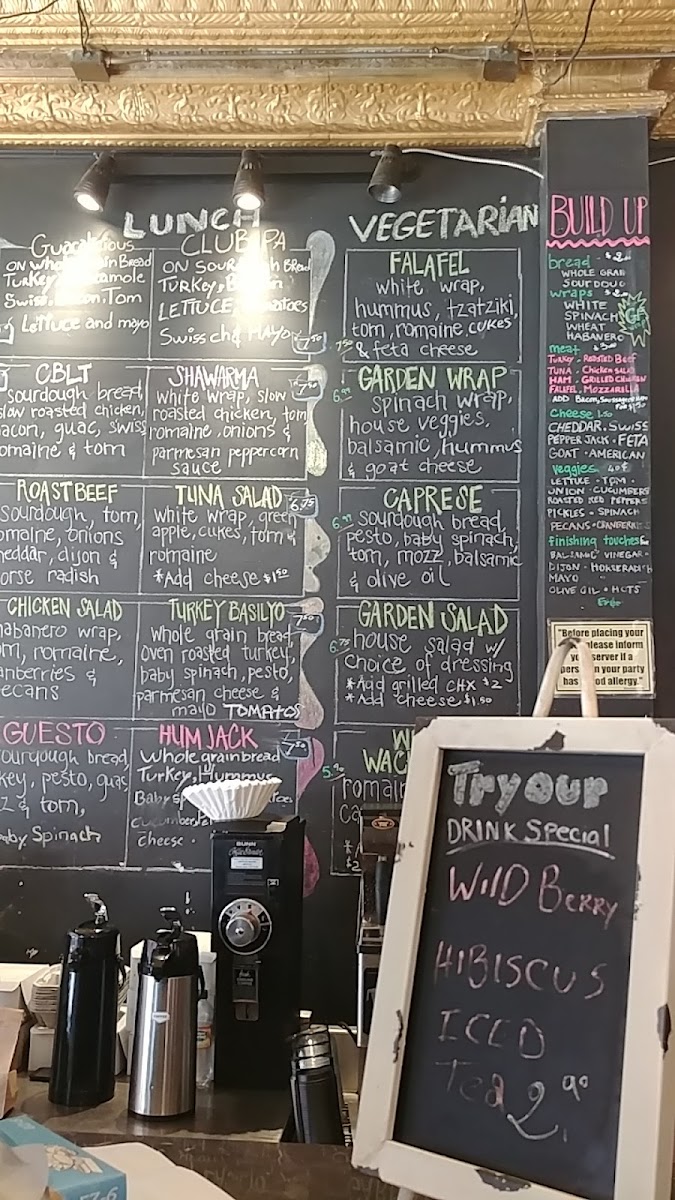 LUNCH
Guacalicious
ON Whole Grain Bread
Turkey, Guacamole
Swiss, Bacon, Tom
Lettuce and mayo
CLUB PA
ON SOURDOUGH Bread
TURKEY, Bacon
LETTUCE, Tomatoes
Swiss ch & MAYO
7.50
CBLT
sourdough bread,
slow roasted chicken,
bacon, guac, swiss
romaine & tom
SHAWARMA
white wrap, slow
roasted chicken, tom
romaine, onions &
parmesan peppercorn
sauce
ROAST BEEF
sourdough, tom,
romaine, onions
cheddar, dijon &
horse radish
TUNA SALAD
6.75
white wrap, green
apple, cukes, tom &
romaine
*Add cheese $1.50
CHICKEN SALAD
habanero wrap,
tom, romaine,
cranberries &
pecans
TURKEY BASILYO
7.50
whole grain bread
oven roasted turkey,
baby spinach, pesto,
parmesan cheese &
mayo TOMATOS
GUESTO
sourdough bread,
turkey, pesto, guac
& tom,
baby Spinach
HUM JACK
7.50
Whole grain bread
Turkey, Hummus
Baby
cucumber
cheese
VEGETARIAN
FALAFEL
white wrap,
hummus, tzatziki,
tom, romaine, cukes
& feta cheese
7.50
GARDEN WRAP
spinach wrap,
house veggies,
balsamic, hummus
& goat cheese
CAPRESE
sourdough bread,
pesto, baby spinach,
tom, mozz, balsamic
& olive oil
GARDEN SALAD
6.75
house salad w/
choice of dressing
*Add grilled CHX $2
*Add cheese $1.50
BUILD UP
bread
WHOLE GRAIN
SOURDOUG
wraps
WHITE
SPINACH
WHEAT
HABANERO
GF
meat
TURKEY - ROASTED BEEF
TUNA - Chicken SALAD
HAM - GRILLED CHICKEN
FALAFEL, MOZZARELLA
ADD Bacon, Sausage
Cheese 1.50
CHEDDAR - SWISS
PEPPER JACK - FETA
GOAT - AMERICAN
Veggies 40¢
LETTUCE - TOM -
ONION - CUCUMBERS
ROASTED RED PEPPERS
PICKLES - SPINACH
PECANS - CRANBERRIES
finishing touches
BALSAMIC VINEGAR -
DIJON - HORSERADISH
MAYO
OLIVE OIL - HOTS
"Before placing your
please inform
your server if a
person in your party
has a food allergy."
BUNN
Try our
DRINK Special
WILD BERRY
HIBISCUS
ICED
Tea 2.90